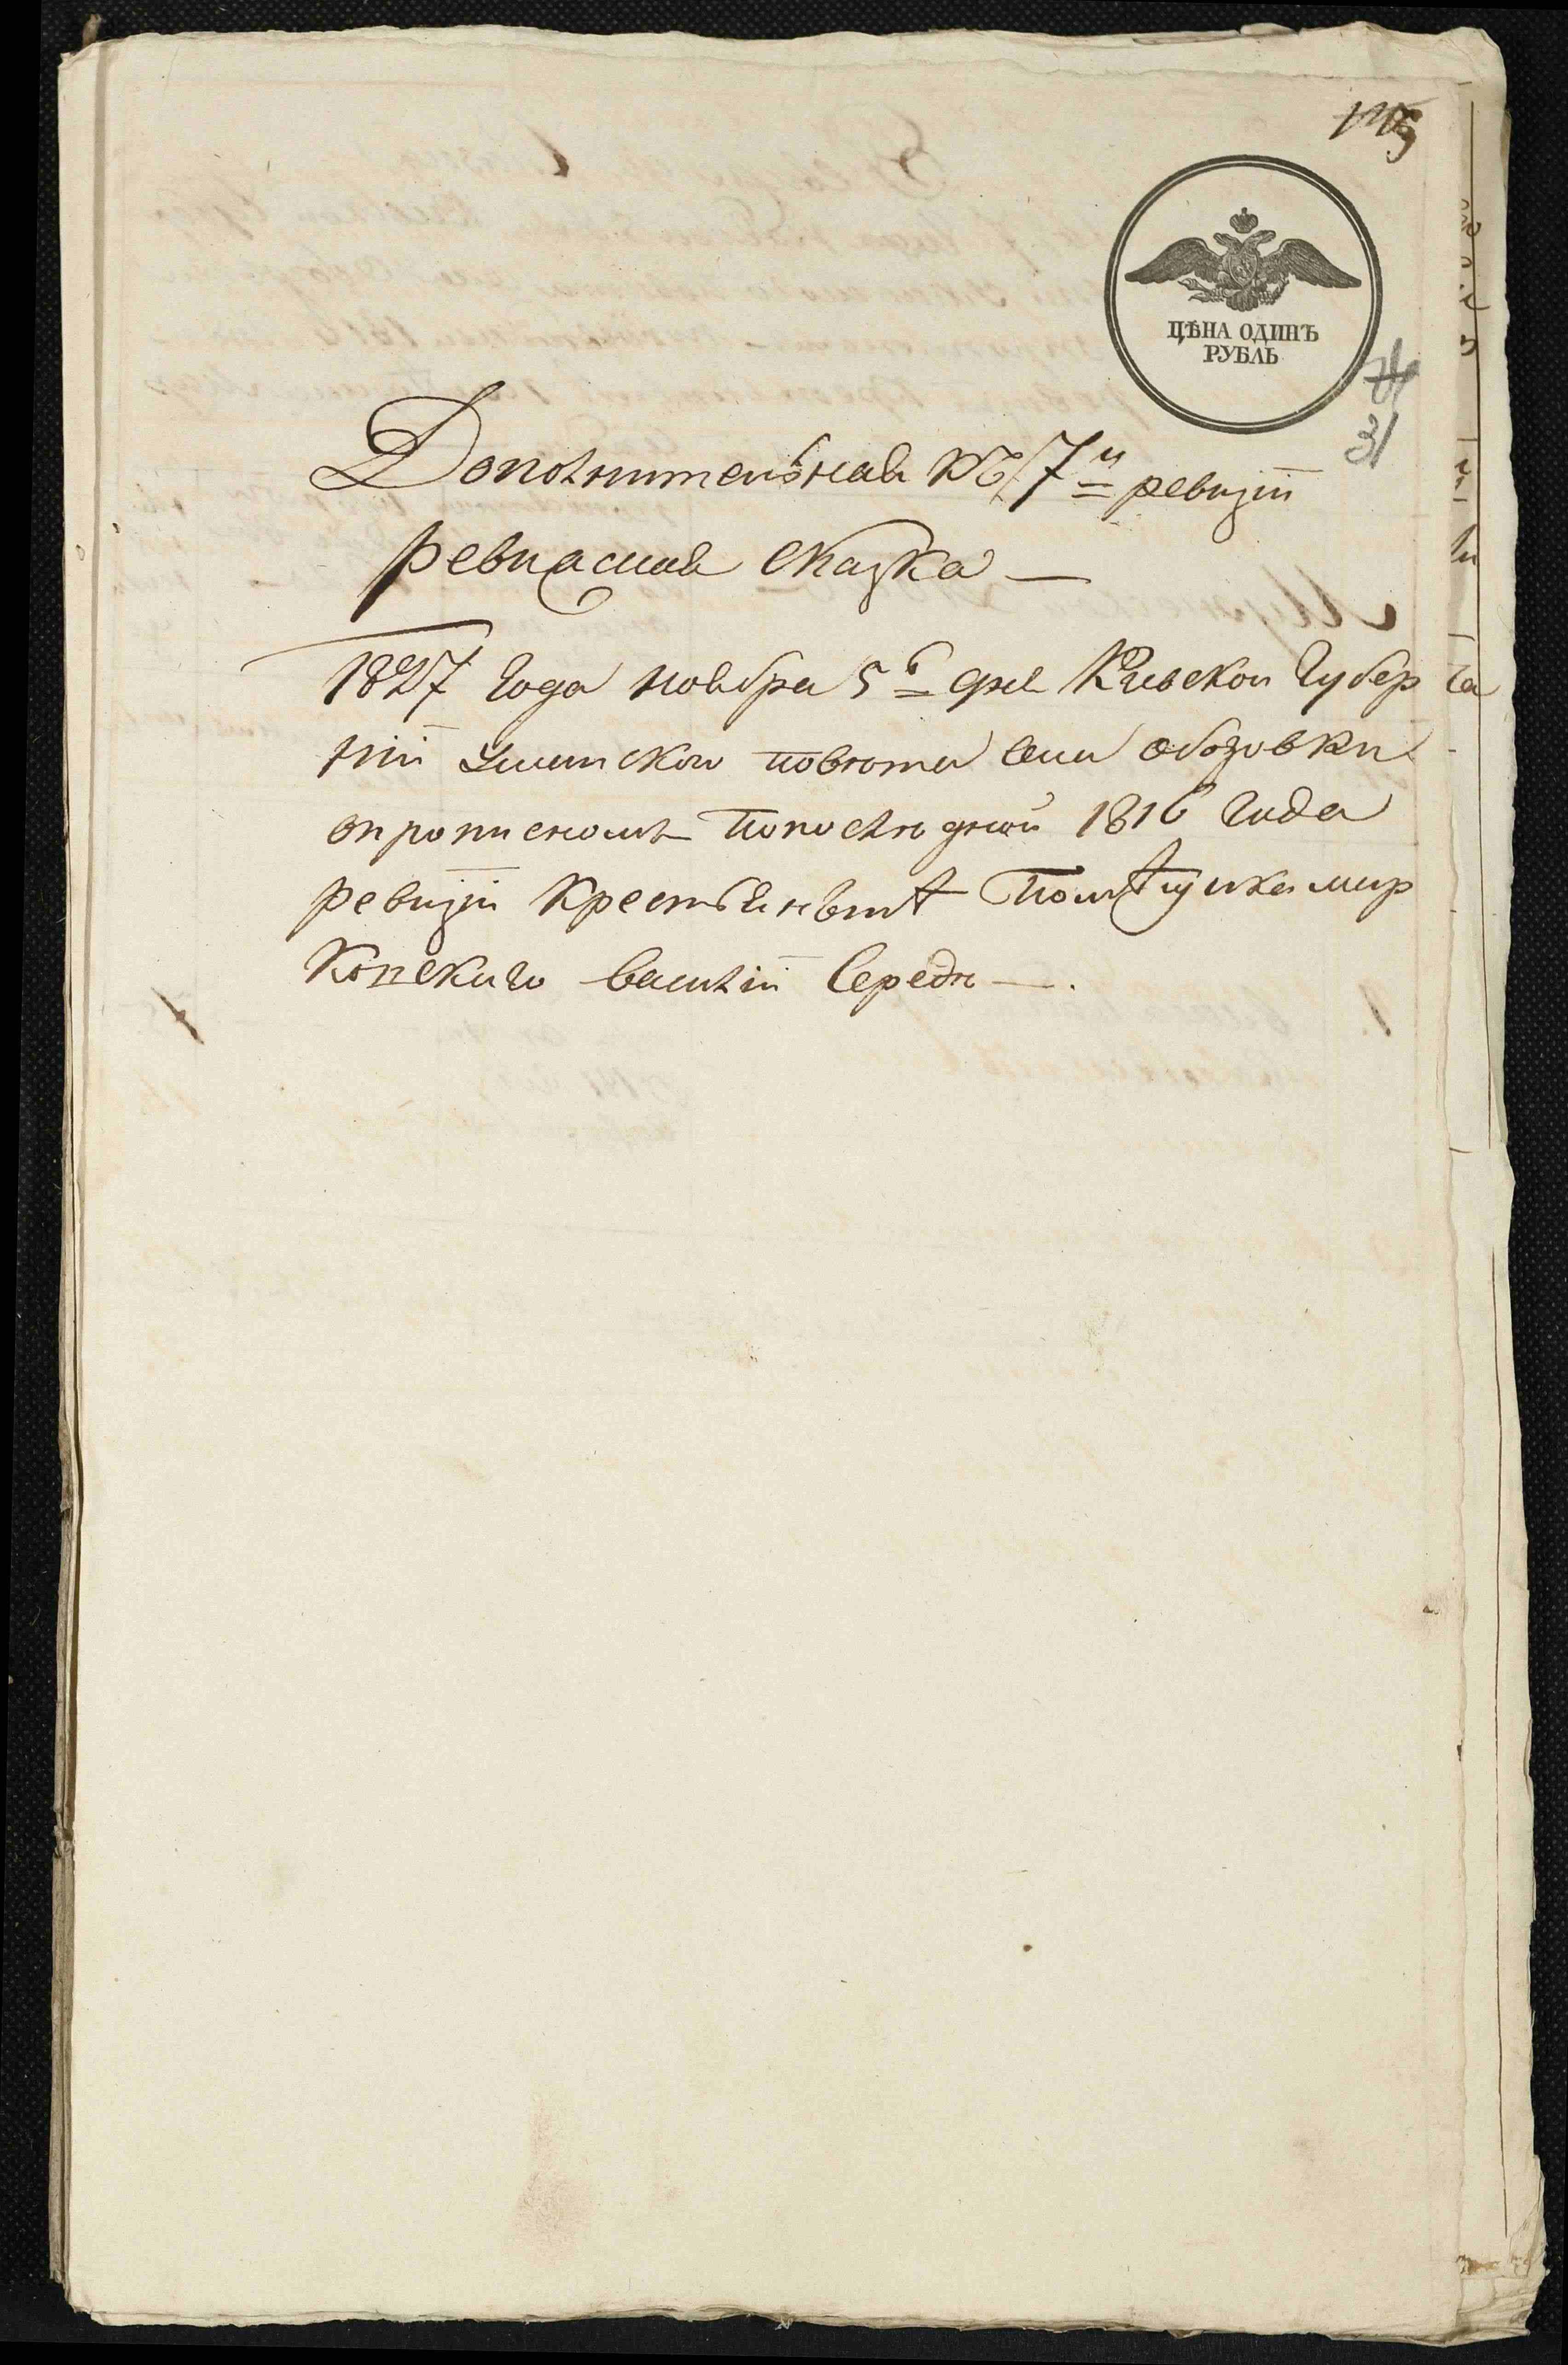 ЦѢНА ОДИНЪ
РУБЛЬ
31
Дополнительная къ 7й ревизіи
ревиская сказка —
1827 года ноября 5ь дня Киевской Губер
ніи Уманского повета села Обозовки
опрописномъ попоследней 1816 года
ревизіи крестьянинѣ Помѣщика мир
Конского василіи Середе —.